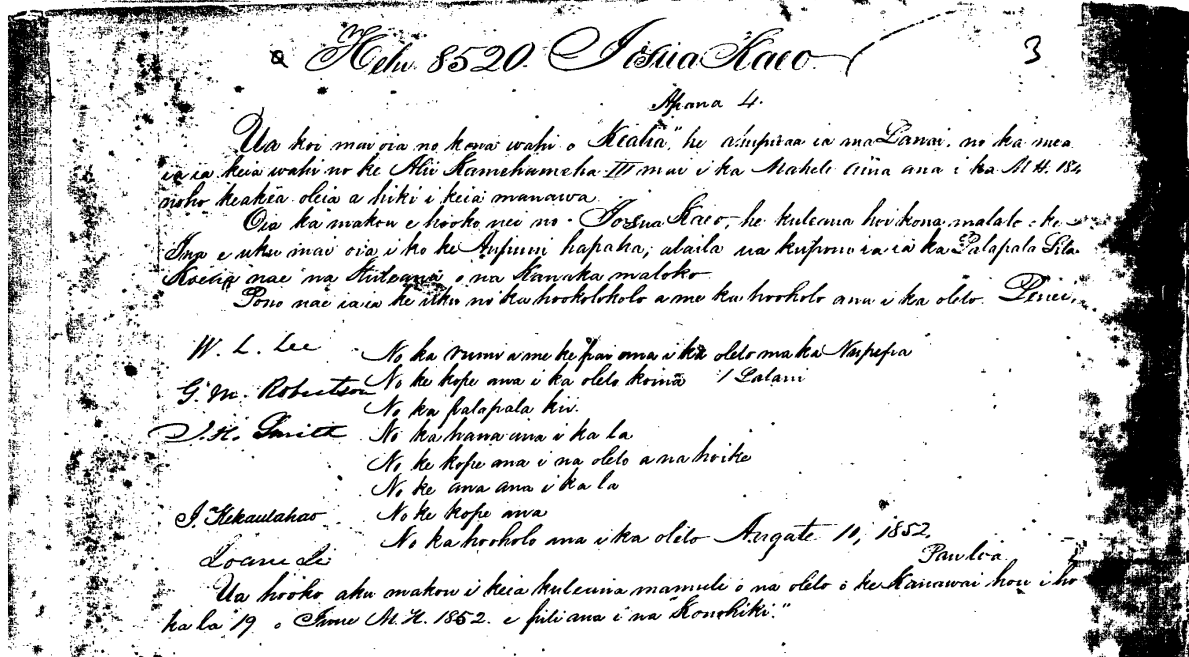 Helu 8520. Iosua Kaeo 3
Apana 4.
Ua koi mai oia no kona wahi o "Kealia", he ahupuaa ia ma Lanai, no ka mea
ia ia keia wahi no ke Alii Kamehameha III mai i ka Mahele aina ana i ka M.H. 184
noho keakea oleia a hiki i keia manawa.
Oia ka makou e hooko nei no Iosua Kaeo, he kuleana hoi kona malalo
Ina e uku mai oia i ko ke Aupuni hapaha, alaila ua kupono ia ia ka Palapala Sila
Koeia nae na Kuleana o na Kanaka maloko.
Pono nae ia ia ke uku no ka hookolokolo a me ka hooholo ana i ka olelo. Penei,
W. L. Lee No ka rumi a me ke pai ana i ka olelo ma ka Nupepa
G. M. Robertson No ke kope ana i ka olelo koina 1 Lalani
No ka palapala kii.
J. H. Smith No ka hana ana i ka la
No ke kope ana i na olelo a na hoike
No ke ana ana i ka la
J. Kekaulahao No ke kope ana
No ka hooholo ana i ka olelo Augate 10, 1852.
Ioane Ii Pauloa
Ua hooko aku makou i keia kuleana mamuli o na olelo o ke Kanawai hou i ho
ka la 19 o Iune M.H. 1852. e pili ana i na "Konohiki."